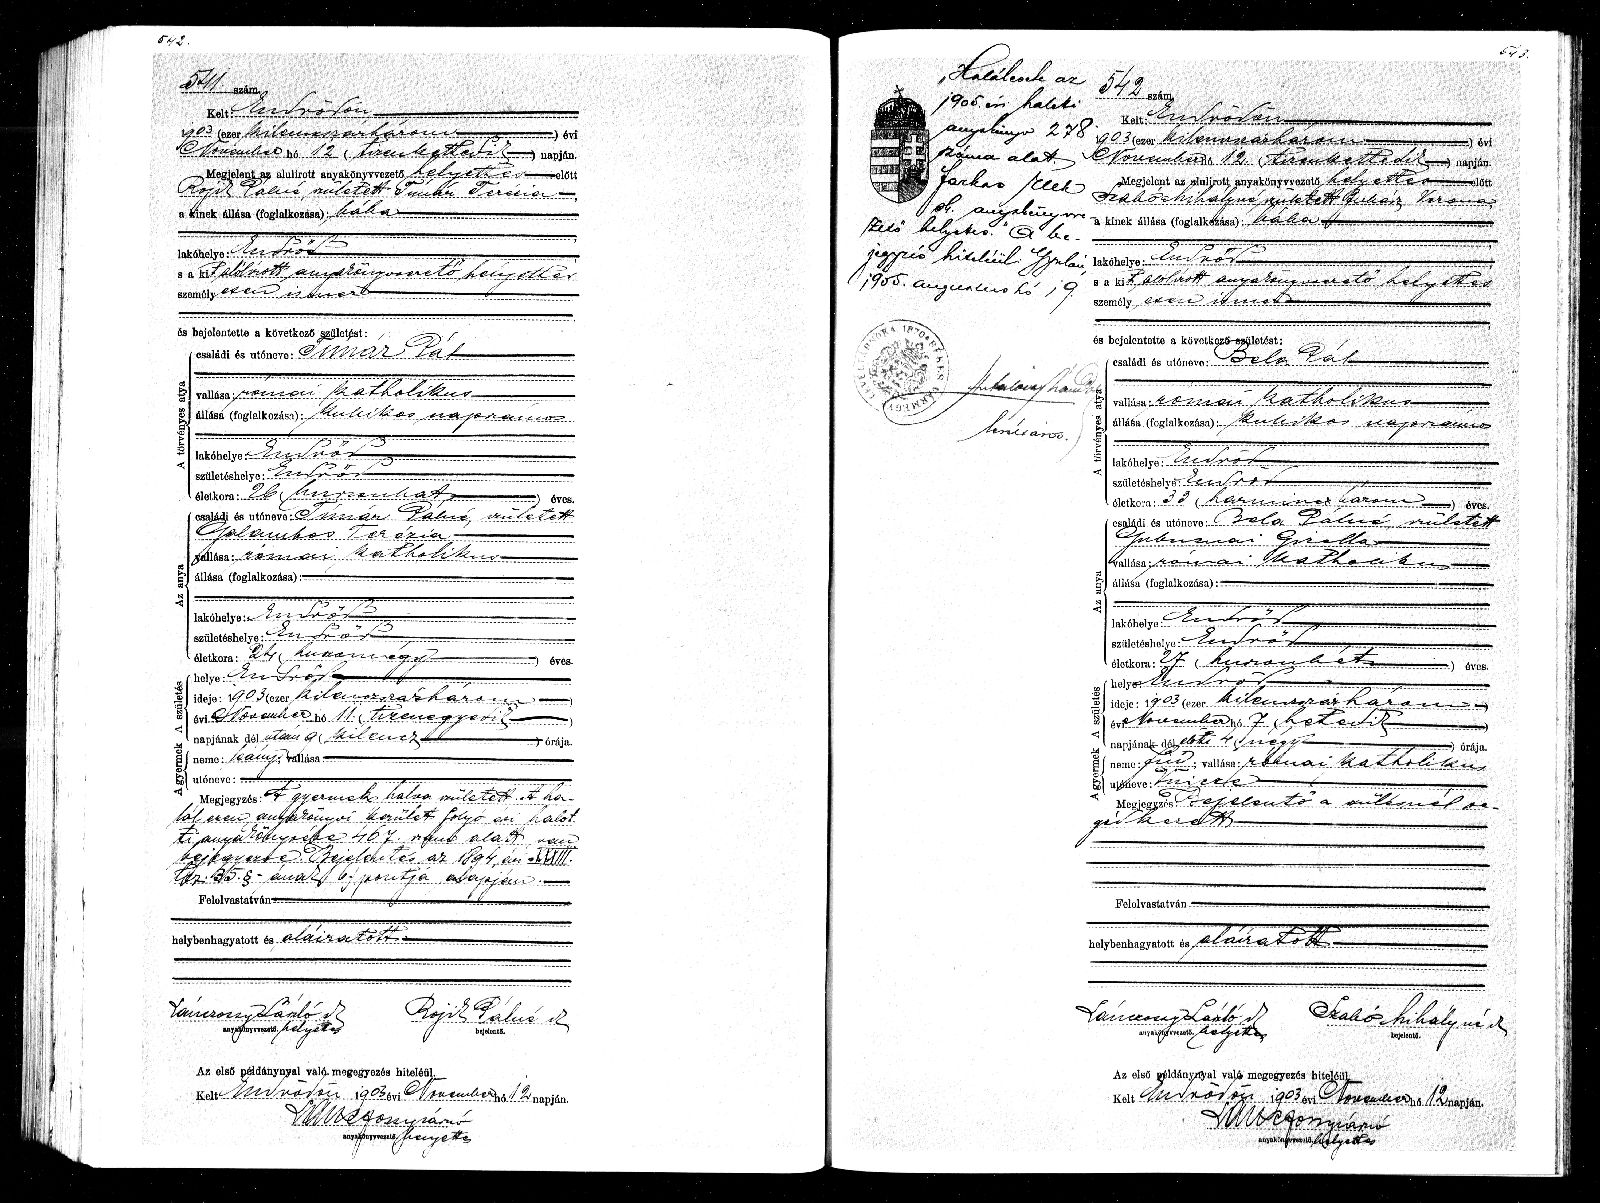 542.
541. szám.
Kelt: Endrődön
1903 (ezer kilenczszázhárom) évi
November hó 12 (tizenkettedik) napján.
Megjelent az alulirott anyakönyvvezető helyettes előtt
Rojik Pálné, született Timár Terézia,
a kinek állása (foglalkozása): bába
lakóhelye: Endrőd
s a kit alólirott anyakönyvvezető helyettes
személyesen ismer
és bejelentette a következő születést:
A törvényes atya
családi és utóneve: Timár Pál
vallása: római katholikus
állása (foglalkozása): kubikos napszámos
lakóhelye: Endrőd
születéshelye: Endrőd
életkora: 26 (huszonhat) éves.
Az anya
családi és utóneve: Timár Pálné, született
Galambos Terézia
vallása: római katholikus
állása (foglalkozása):
lakóhelye: Endrőd
születéshelye: Endrőd
életkora: 24 (huszonnégy) éves.
A születés
helye: Endrőd
ideje: 1903 (ezer kilenczszázhárom)
évi November hó 11 (tizenegyedik)
napjának dél utáni 9 (kilencz) órája.
A gyermek
neme: leány; vallása:
utóneve:
Megjegyzés: A gyermek halva született. A ha-
lál ezen anyakönyvi kerület folyó évi halot-
ti anyakönyvébe 407. szám alatt van
bejegyezve. Bejelentés az 1894 évi XXXIII.
tcz. 35. §-ának pontja alapján.
Felolvastatván
helybenhagyatott és aláiratott.
Lánczonyi László sk
anyakönyvvezető. helyettes
Rojik Pálné sk
bejelentő.
Az első példánynyal való megegyezés hiteléül.
Kelt Endrődön 1903 évi November hó 12 napján.
anyakönyvvezető. helyettes
543.
"Halálesete az
1905 évi haláti
anyakönyv 278.
száma alatt
Farkas Elek
sk. anyakönyvve-
zető helyettes." A be-
jegyzés hiteléül Gyulán,
1905. augusztus hó 19.
542 szám.
Kelt: Endrődön
1903 (ezer kilenczszázhárom) évi
November hó 12 (tizenkettedik) napján.
Megjelent az alulirott anyakönyvvezető helyettes előtt
Szabó Mihályné született Verona,
a kinek állása (foglalkozása): bába
lakóhelye: Endrőd
s a kit alólirott anyakönyvvezető helyettes
személyesen ismer
és bejelentette a következő születést:
A törvényes atya
családi és utóneve: Bela Pál
vallása: római katholikus
állása (foglalkozása): kubikos napszámos
lakóhelye: Endrőd
születéshelye: Endrőd
életkora: 33 (harminczhárom) éves.
Az anya
családi és utóneve: Bela Pálné született
Gizella
vallása: római katholikus
állása (foglalkozása):
lakóhelye: Endrőd
születéshelye: Endrőd
életkora: 27 (huszonhét) éves.
A születés
helye: Endrőd
ideje: 1903 (ezer kilenczszázhárom)
évi November hó 7 (hetedik)
napjának dél előtti 4 (négy) órája.
A gyermek
neme: fiú; vallása: római katholikus
utóneve: Vincze
Megjegyzés: Bejelentő a szülésnél se-
gédkezett
Felolvastatván
helybenhagyatott és aláiratott
Lánczonyi László sk
anyakönyvvezető. helyettes
Szabó Mihályné sk
bejelentő.
Az első példánynyal való megegyezés hiteléül.
Kelt Endrődön 1903 évi November hó 12 napján.
anyakönyvvezető. helyettes